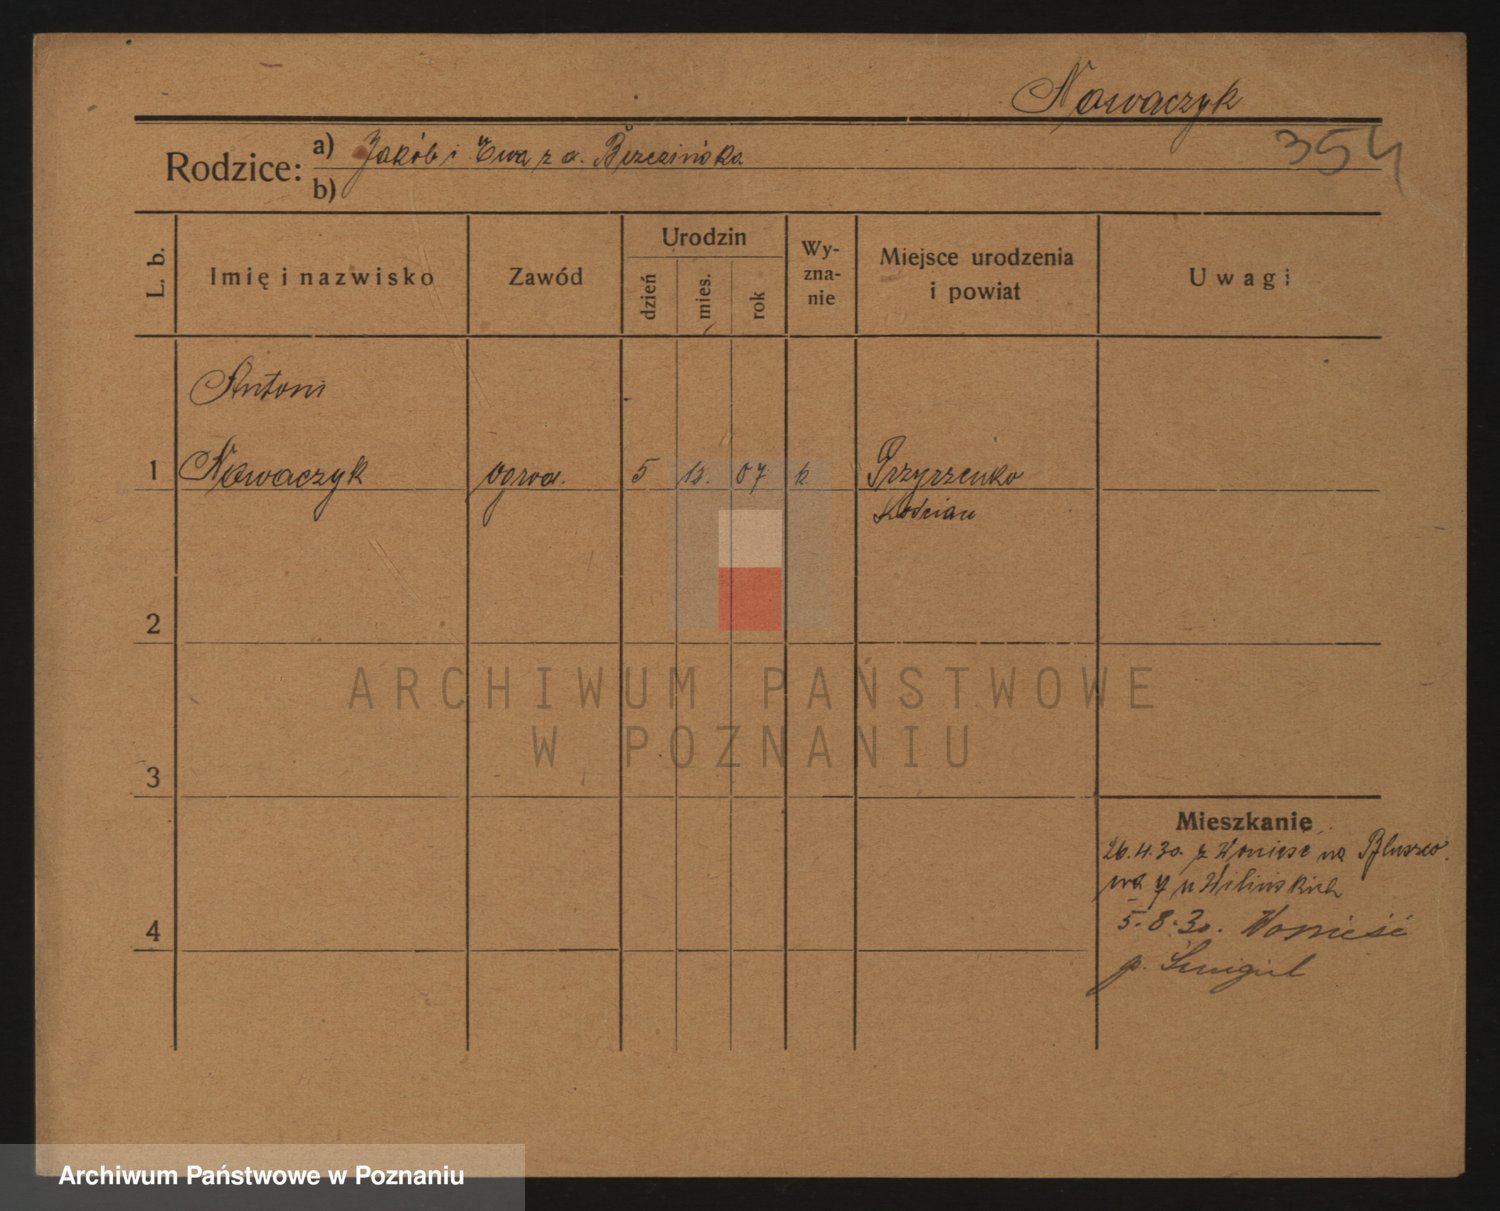 Nowaczyk
354
Rodzice: a) Jakób i Ewa z d. Brzezińska
b)
L. b. Imię i nazwisko Zawód Urodzin dzień mies. rok Wy-zna-nie Miejsce urodzenia i powiat Uwagi
Antoni
1 Nowaczyk ogrod. 5 12. 07 k
Kościan
2
ARCHIWUM PAŃSTWOWE
W POZNANIU
3
Mieszkanie
26.4.30. z Wonieść na
u Wilińskich
4 5.8.30. Wonieść
p. Śmigiel
Archiwum Państwowe w Poznaniu